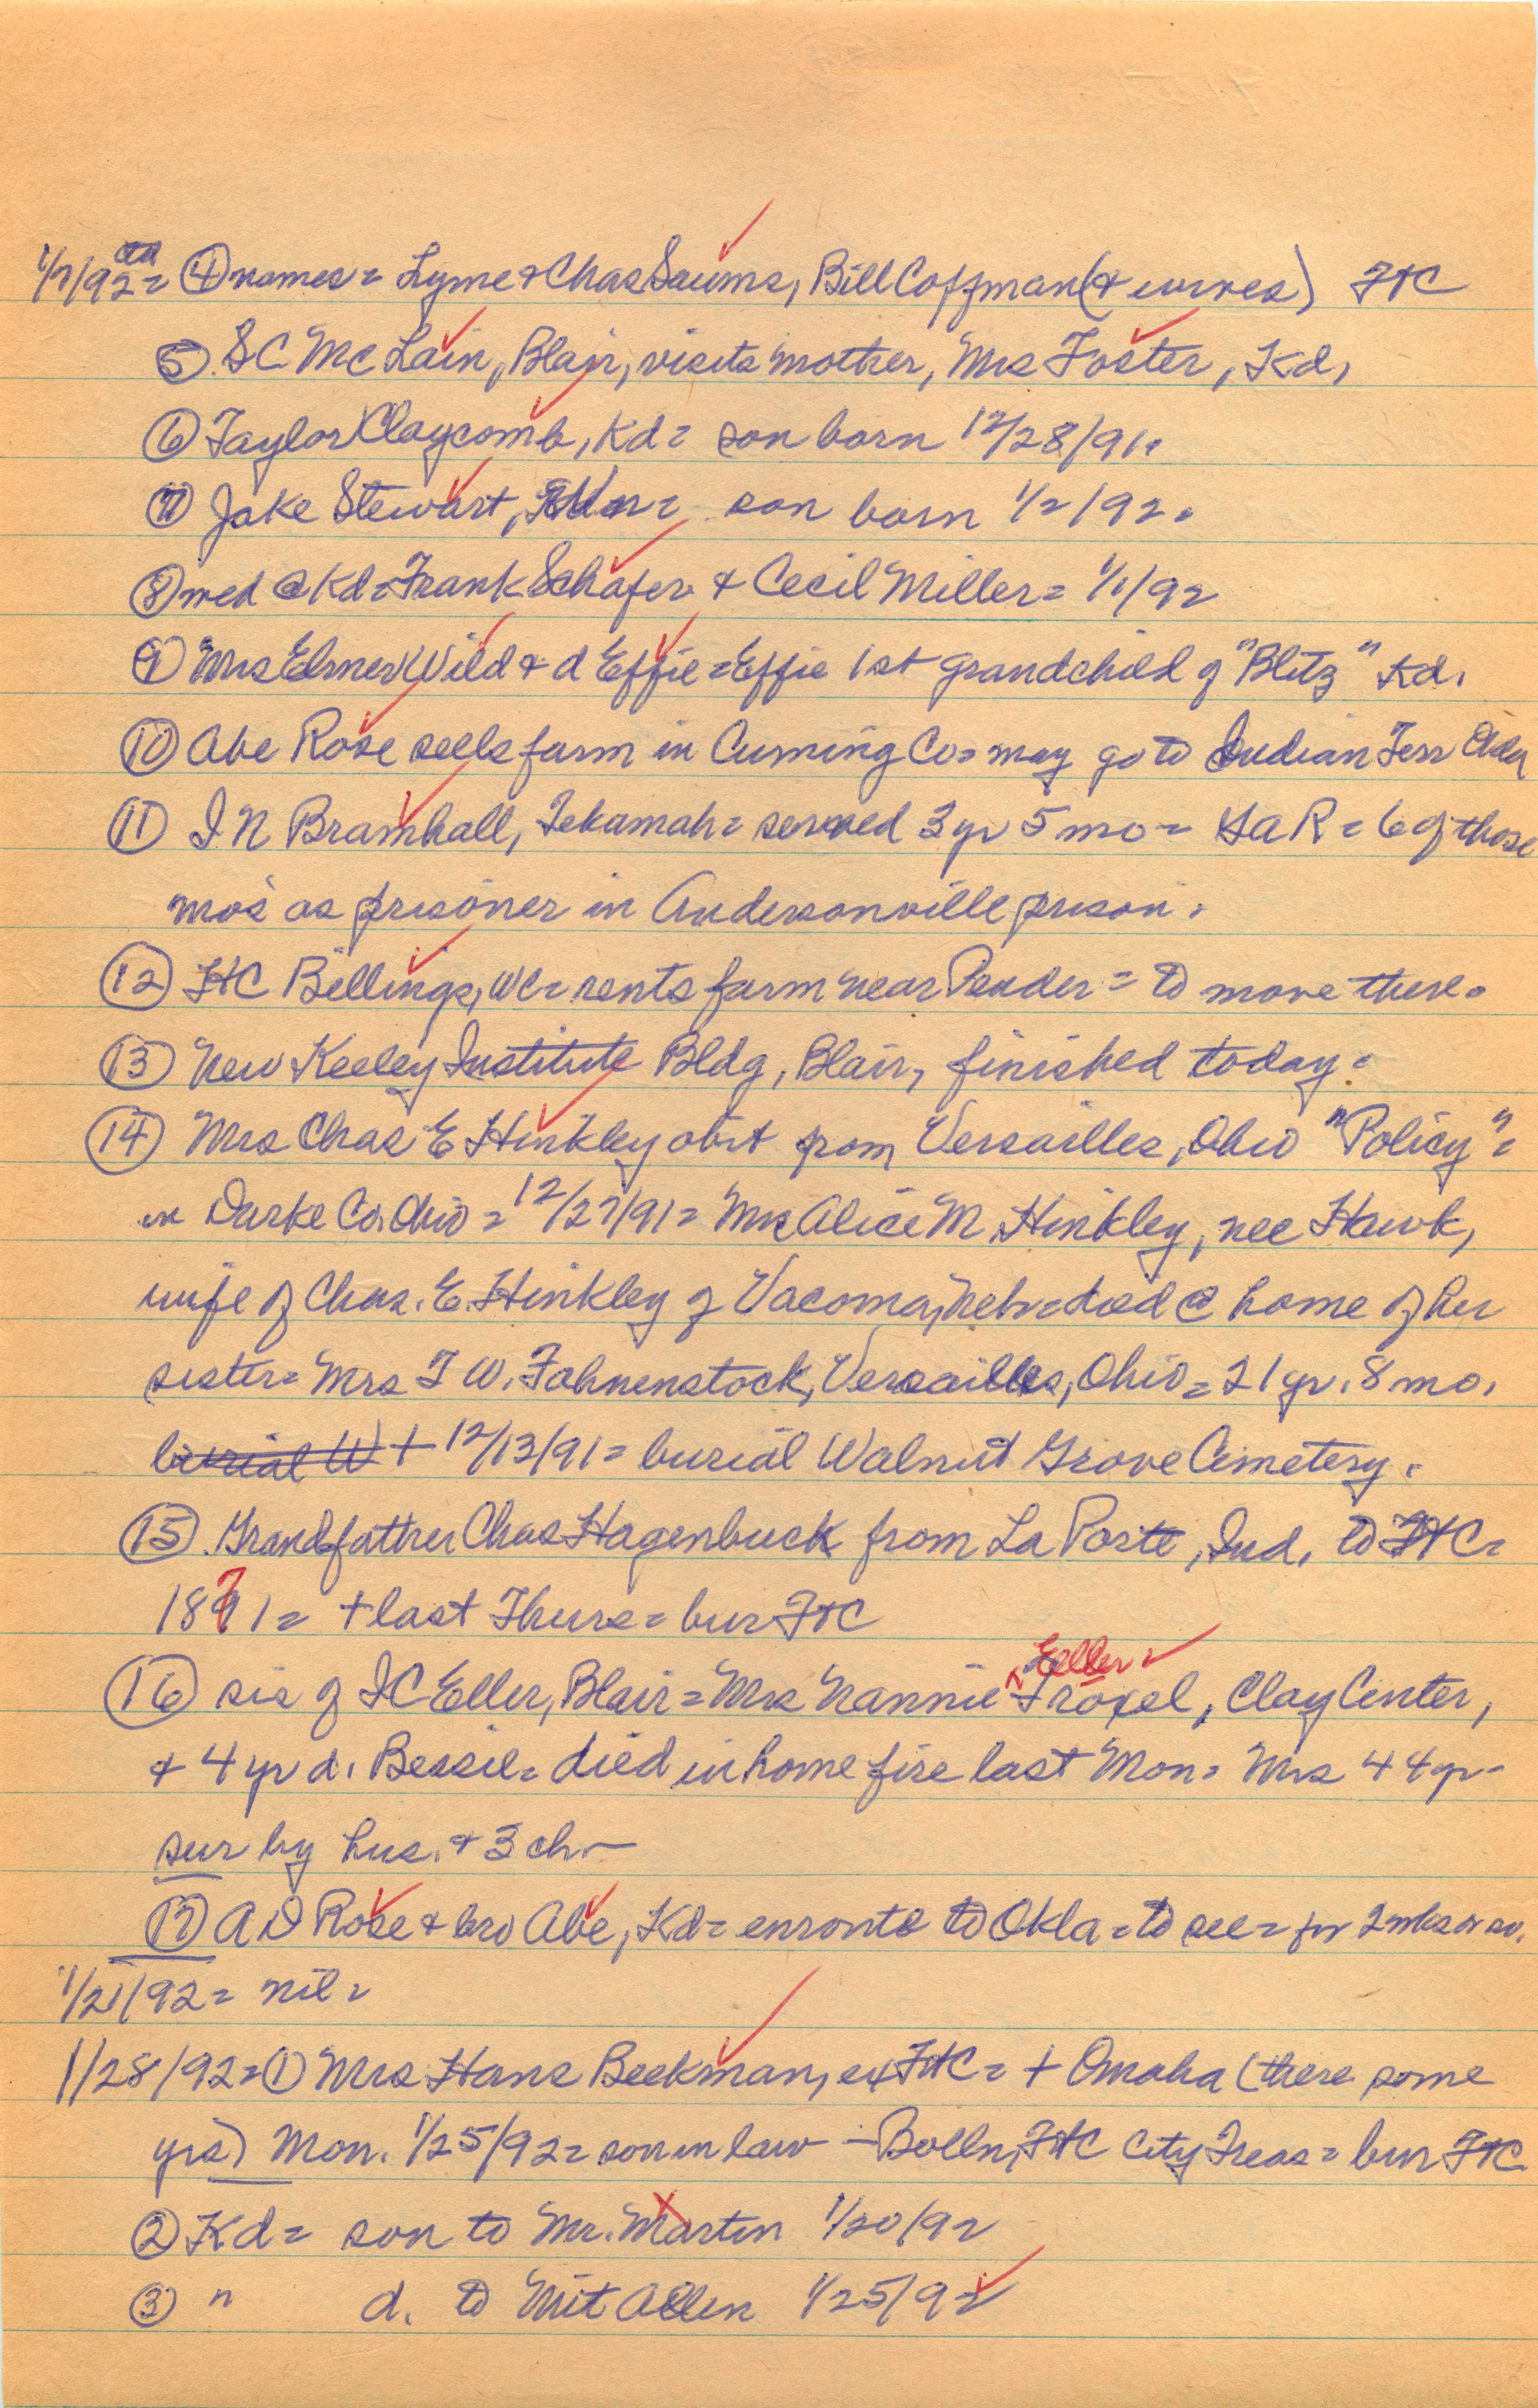 1/7/92 = ④ names = Lyme & Chas Saums, Bill Coffman (& wives) FtC
⑤. SC McLain, Blair, visits mother, Mrs Foster, Kd,
⑥ Taylor Claycomb, Kd = son born 12/28/91.
⑦ Jake Stewart, = son born 1/2/92.
⑧ med @ Kd = Frank Schafer & Cecil Miller = 1/1/92
⑨ Mrs Elmer Wild & d Effie = Effie 1st grandchild of "Blitz" Kd.
⑩ Abe Rose sells farm in Cuming Co = may go to Indian Terr
⑪ I N Bramhall, Tekamah = served 3 yr 5 mo = GAR = 6 of those
mos as prisoner in Andersonville prison.
⑫ HC Billings, = rents farm near Pender = to move there.
⑬ New Keeley Institute Bldg, Blair, finished today.
⑭ Mrs Chas E Hinkley obit from Versailles, Ohio "Policy" =
in Darke Co. Ohio = 12/27/91 = Mrs Alice M. Hinkley, nee Hawk,
wife of Chas. E. Hinkley of Vacoma, Neb = died @ home of her
sister = Mrs T W. Fahnenstock, Versailles, Ohio = 21 yr. 8 mo.
burial W + 12/13/91 = burial Walnut Grove Cemetery.
⑮. Grandfather Chas Hagenbuck from La Porte, Ind. to FtC =
1871 = + last Thurs = bur FtC
Eller
⑯ sis of JC Eller, Blair = Mrs Nannie Troxel, Clay Center,
& 4 yr d. Bessie = died in home fire last Mon = Mrs 44 yr -
sur by hus. & 3 ch. -
⑰ A D Rose & bro Abe, Kd = enroute to Okla = to see = for 2 wks or so.
1/21/92 = nil =
1/28/92 = ① Mrs Hans Beekman, ex FtC = + Omaha (there some
yrs) Mon. 1/25/92 = son in law - Bolln, FtC City Treas = bur FtC
② Kd = son to Mr. Martin 1/20/92
③ " d. to Mit Allen 1/25/92